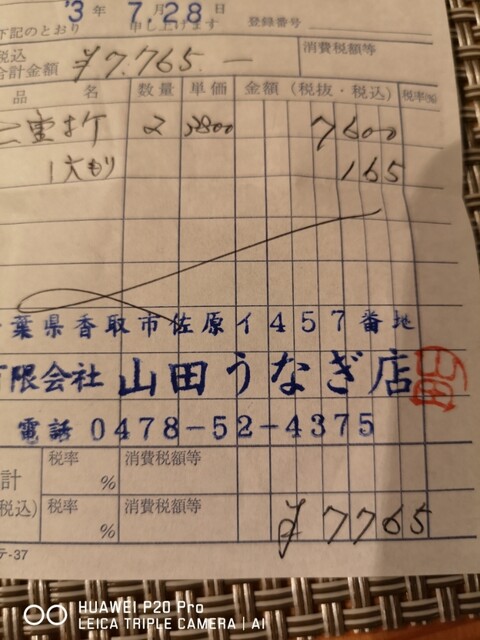 '3年 7月28日
下記のとおり 申し上げます 登録番号
税込 合計金額 ¥7,765.― 消費税額等
品名 数量 単価 金額(税抜・税込) 税率(%)
二重オケ 2 3800 7600
1大もり 165
葉県香取市佐原イ457番地
有限会社 山田うなぎ店
電話 0478-52-4375
計 税率 % 消費税額等
税込) 税率 % 消費税額等
¥7765
テ-37
HUAWEI P20 Pro
LEICA TRIPLE CAMERA | AI